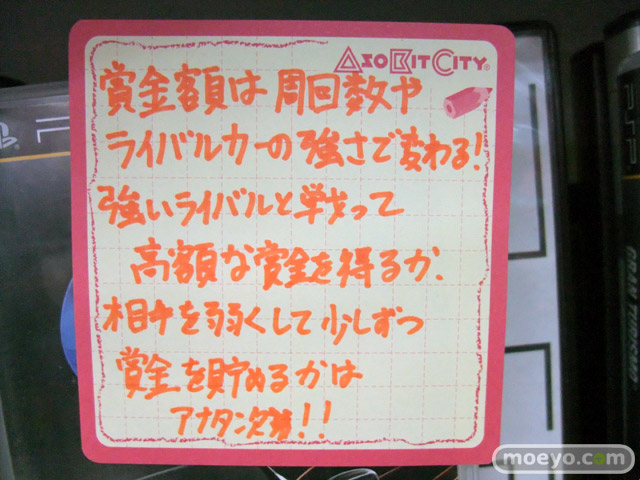 AsoBitCity
賞金額は周回数や
ライバルカーの強さで変わる!
強いライバルと戦って
高額な賞金を得るか、
相手を弱くして少しずつ
賞金を貯めるかは
アナタ次第!!
moeyo.com